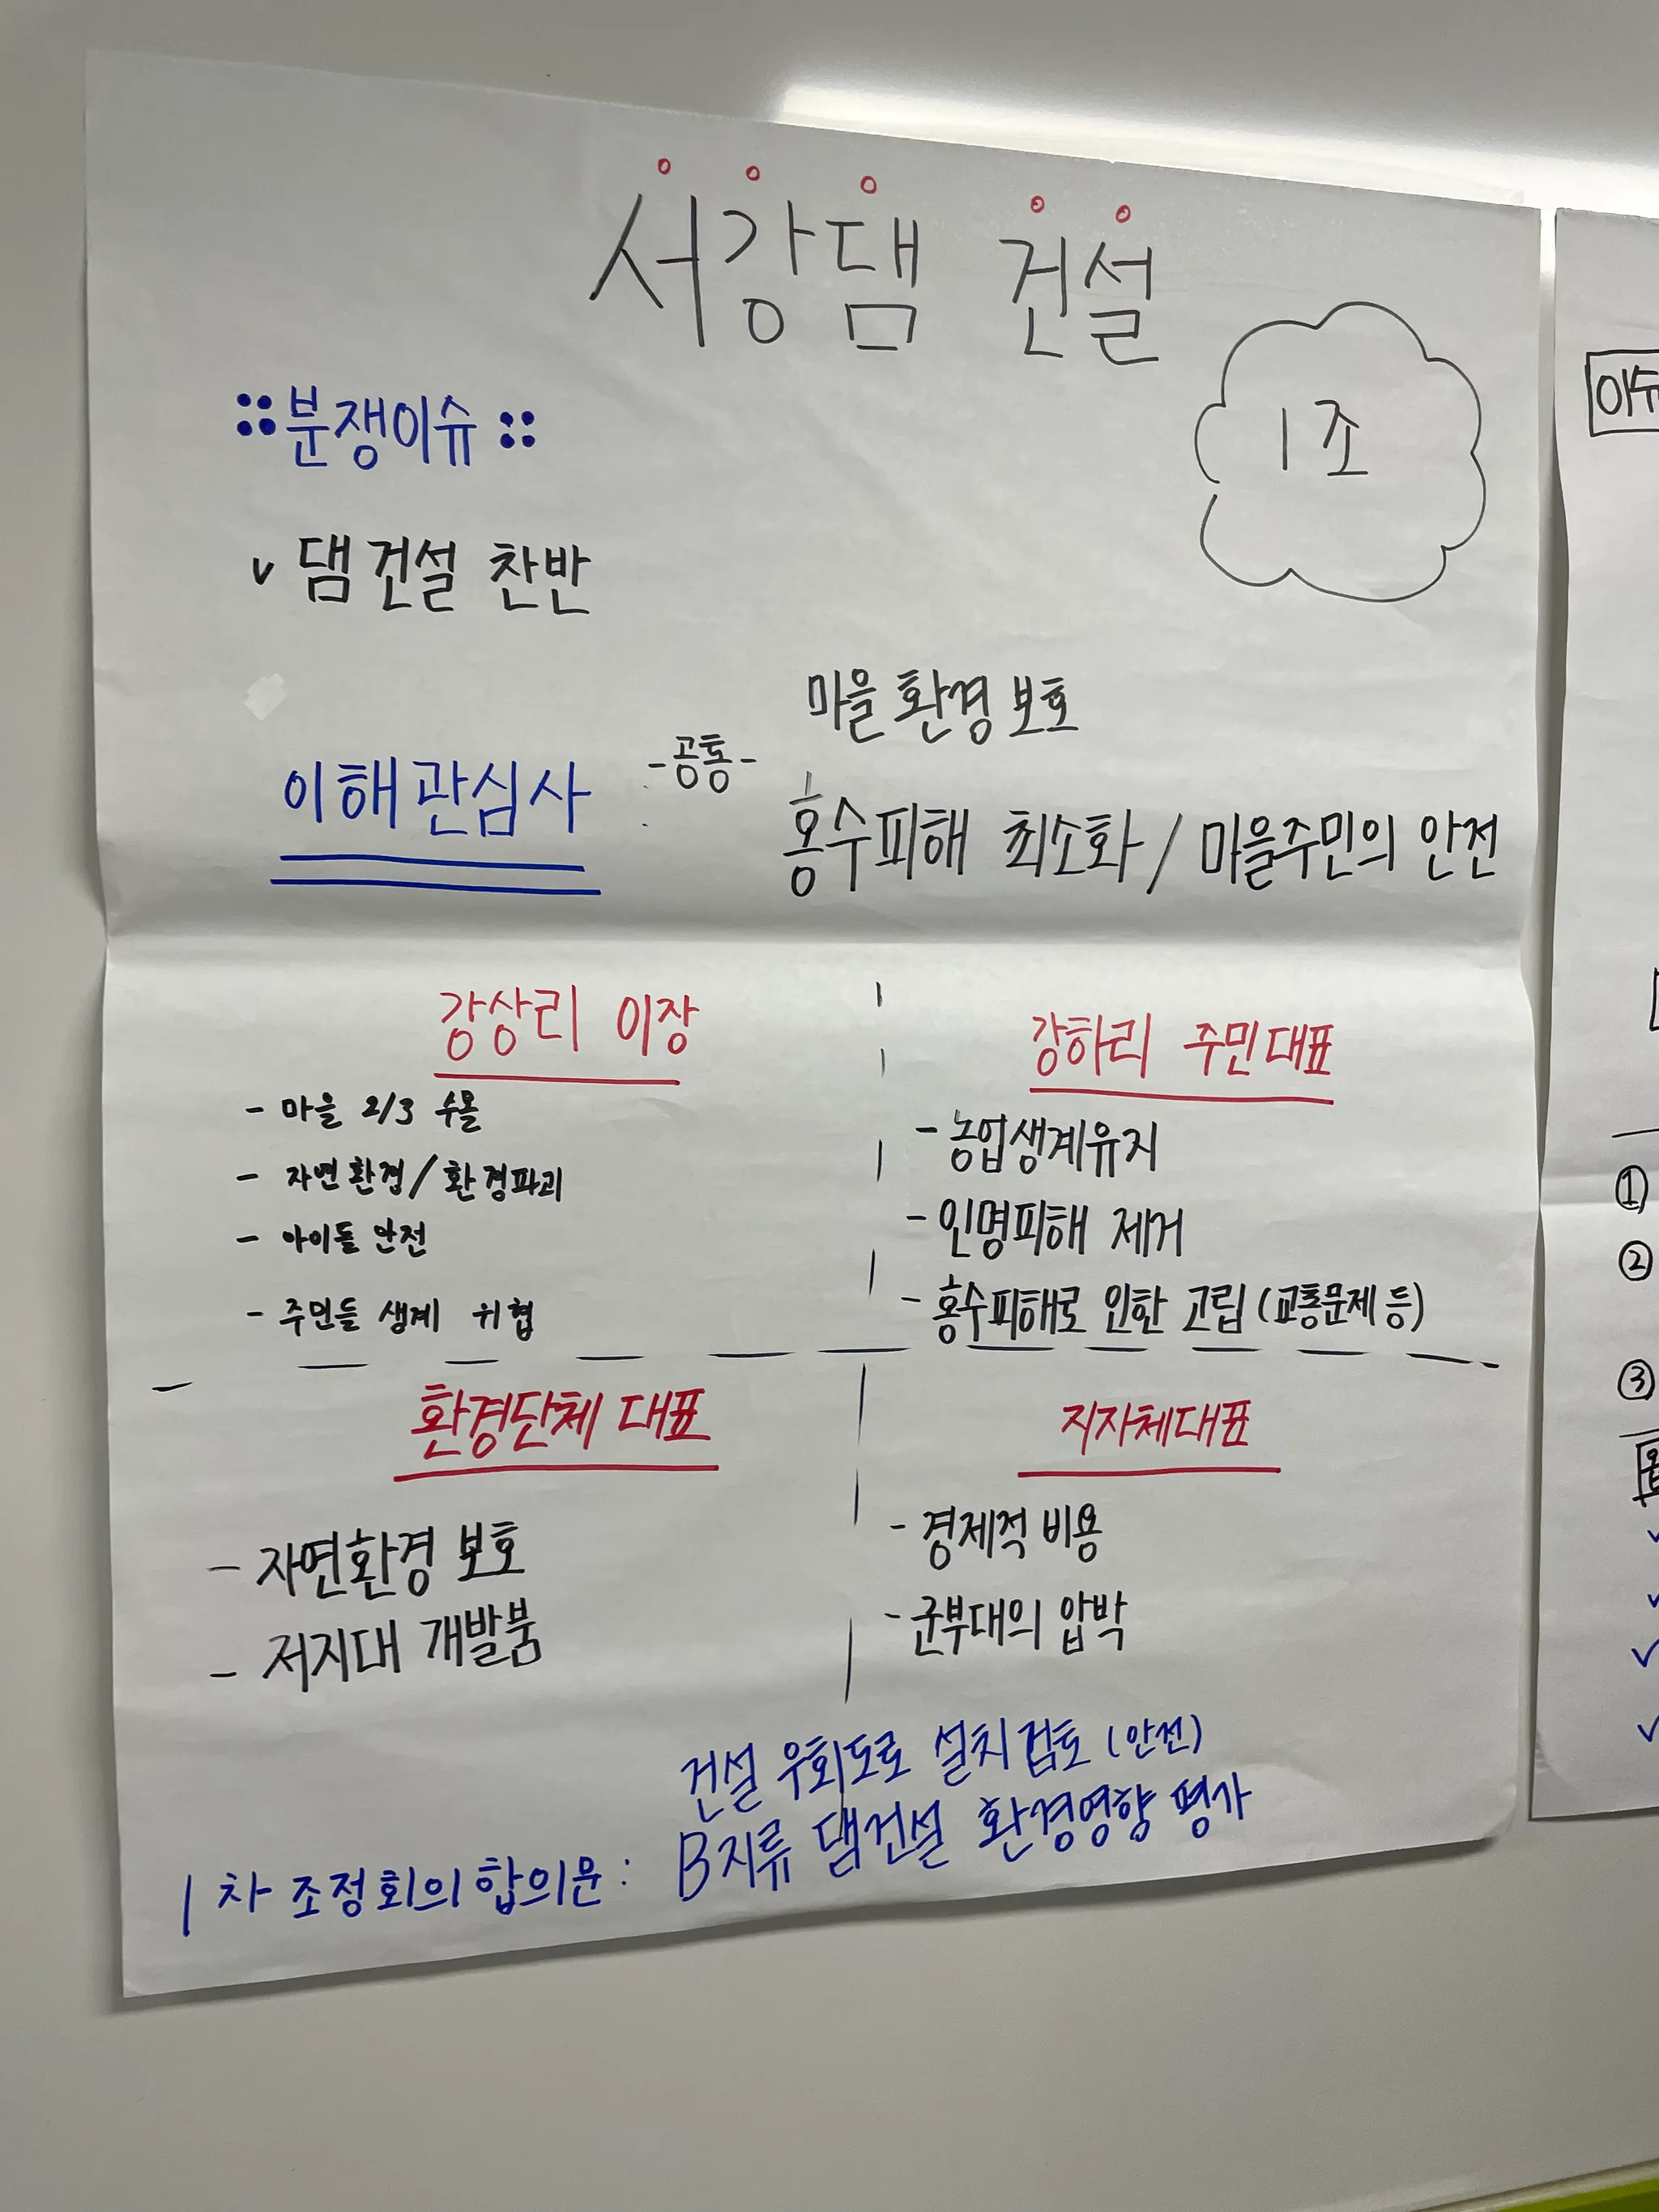 서강댐 건설
1조
분쟁이슈
v 댐 건설 찬반
이해관심사
-공통-
마을 환경 보호
홍수피해 최소화 / 마을주민의 안전
강상리 이장
- 마을 2/3 수몰
- 자연환경/환경파괴
- 아이들 안전
- 주민들 생계 위협
강하리 주민대표
- 농업생계유지
- 인명피해 제거
- 홍수피해로 인한 고립 (교통문제 등)
환경단체 대표
- 자연환경 보호
- 저지대 개발붐
지자체대표
- 경제적 비용
- 군부대의 압박
건설 우회도로 설치 검토 (안전)
1차 조정회의 합의문 : B지류 댐건설 환경영향 평가
이슈
①
②
③